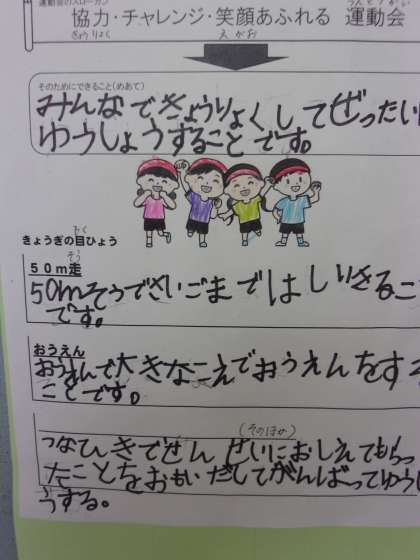 運動会のスローガン
きょうりょく えがお うんどうかい
協力・チャレンジ・笑顔あふれる 運動会
そのためにできること(めあて)
みんなできょうりょくしてぜったい
ゆうしょうすることです。
きょうぎの目ひょう
もく
そう
50m走
50mそうでさいごまではしりきるこ
です。
おうえん
おうえんで大きなこえでおうえんをする
ことです。
(そのほか)
つなひきでせんせいにおしえてもらっ
たことをおもいだしてがんばってゆうし
ょうする。